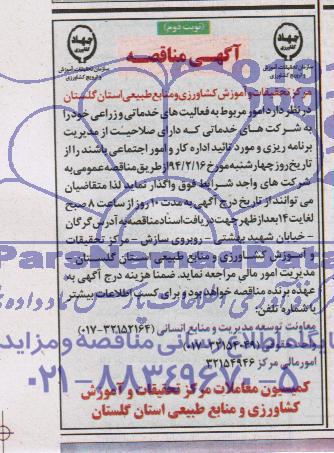 (نوبت دوم)
آگهی مناقصه
جهاد کشاورزی
سازمان تحقیقات، آموزش و ترویج کشاورزی
جهاد کشاورزی
سازمان تحقیقات، آموزش و ترویج کشاورزی
مرکز تحقیقات و آموزش کشاورزی و منابع طبیعی استان گلستان
در نظر دارد امور مربوط به فعالیت های خدماتی و زراعی خود را
به شرکت های خدماتی که دارای صلاحیت از مدیریت
برنامه ریزی و مورد تائید اداره کار و امور اجتماعی باشند را از
تاریخ روز چهارشنبه مورخ ۹۴/۲/۱۶ از طریق مناقصه عمومی به
شرکت های واجد شرایط فوق واگذار نماید لذا متقاضیان
می توانند از تاریخ درج آگهی به مدت ۱۰ روز از ساعت ۸ صبح
لغایت ۱۴ بعد از ظهر جهت دریافت اسناد مناقصه به آدرس گرگان
- خیابان شهید بهشتی - روبروی سازش - مرکز تحقیقات
و آموزش کشاورزی و منابع طبیعی استان گلستان -
مدیریت امور مالی مراجعه نماید. ضمنا هزینه درج آگهی به
عهده برنده مناقصه خواهد بود و برای کسب اطلاعات بیشتر
با شماره تلفن:
معاونت توسعه مدیریت و منابع انسانی (۳۲۱۵۲۱۶۴-۰۱۷)
امور حقوقی (۳۲۱۵۴۰۴۹۱-۰۱۷)
امور مالی مرکز ۳۲۱۵۴۹۴۶
کمیسیون معاملات مرکز تحقیقات و آموزش
کشاورزی و منابع طبیعی استان گلستان
۰۲۱-۸۸۳۴۹۶۷۰-۵